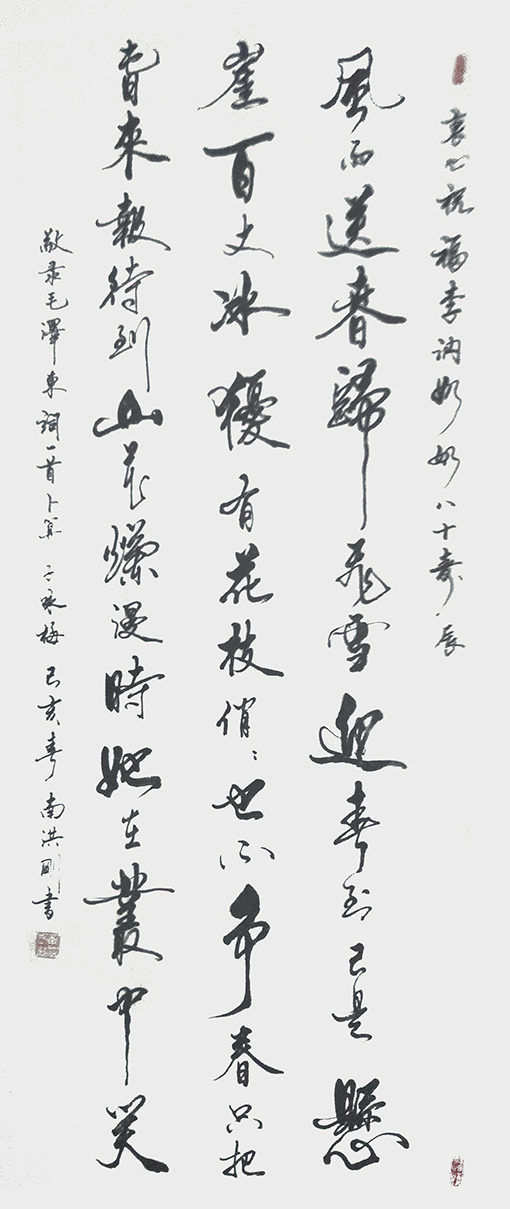 衷心祝福李讷奶奶八十寿辰
風雨送春歸飛雪迎春到已是懸
崖百丈冰獶有花枝俏〻也不争春只把
春來報待到山花爛漫時她在叢中笑
敬录毛澤東詞一首卜算子咏梅己亥春南洪剛書